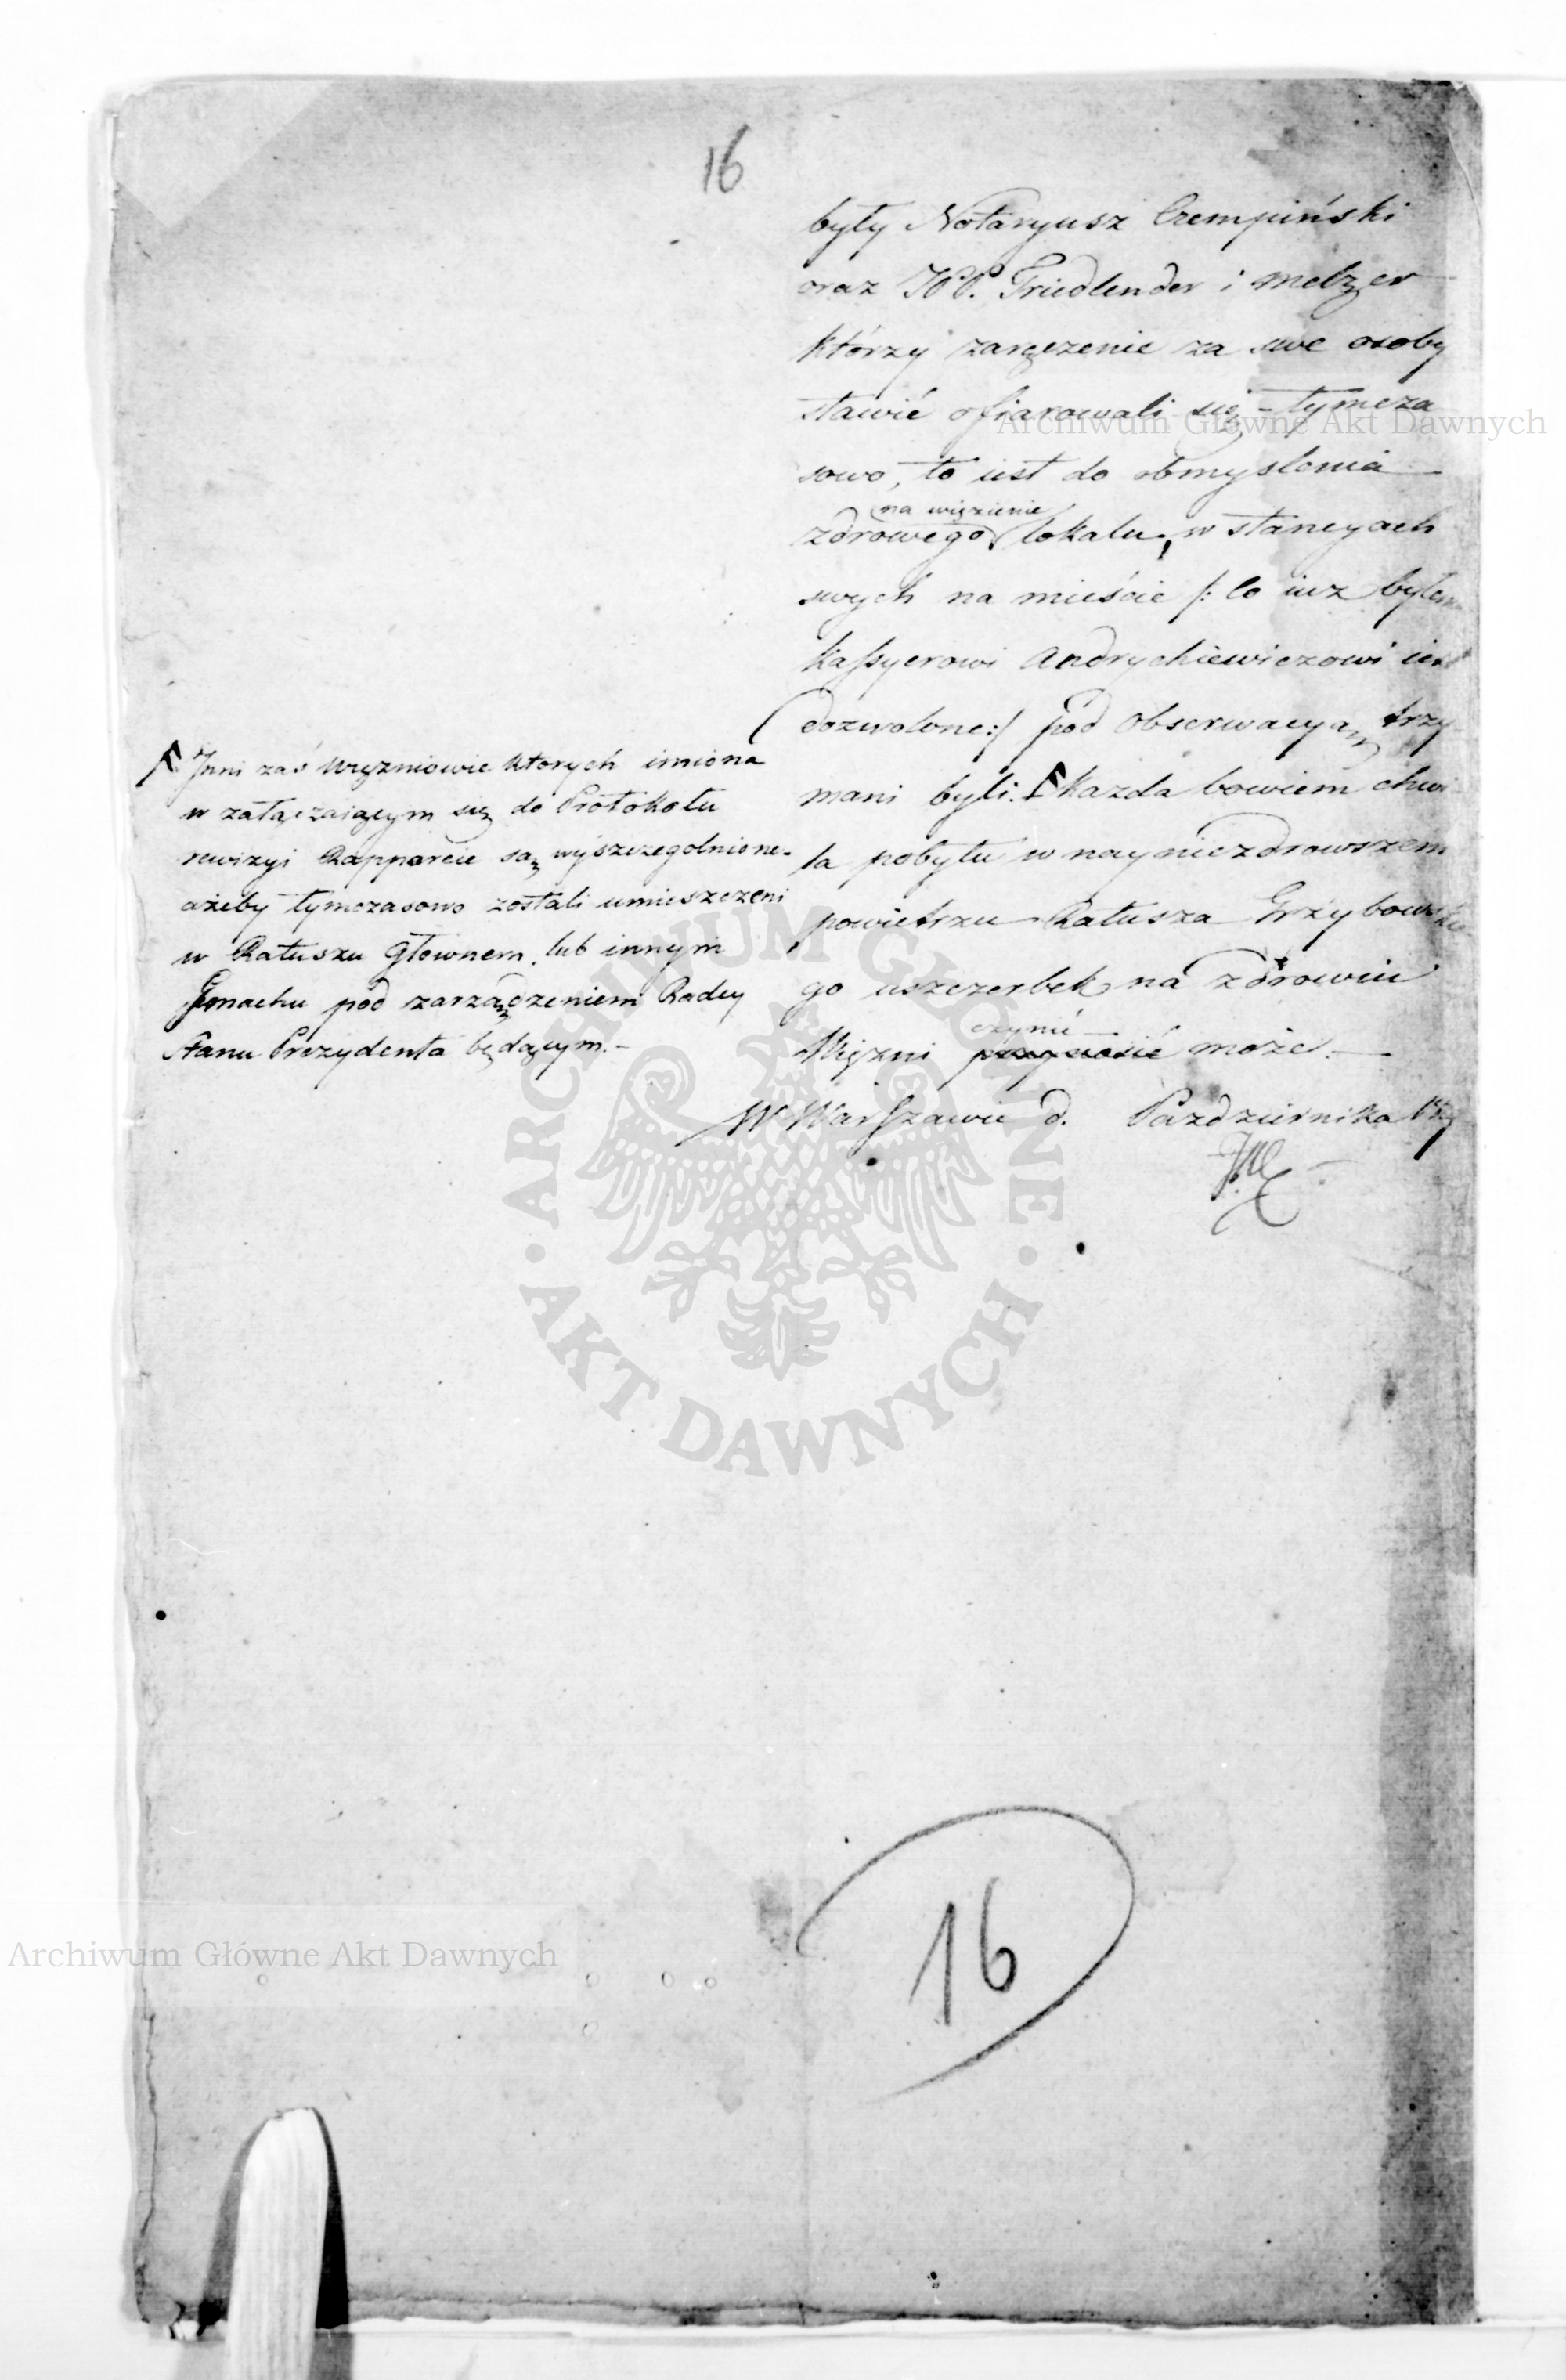 16
były Notaryusz Czempiński
oraz PP. Friedlender i Melzer
którzy zaręczenie za swe osoby
stawić ofiarowali się – tymcza
sowo, to iest do obmyslenia
na więzienie
zdrowego lokalu, w stancyach
swych na mieście /: Co iuz byłemu
Kassyerowi Andrychiewiczowi iest
dozwolone :/ pod Obserwacyą trzy
mani byli. każda bowiem chwi
la pobytu w nayniezdrowszem
powietrzu Ratusza Grzybowskie
go uszczerbek na zdrowiu
czynić
Więzni przynosić może. —
W Warszawie d. Pazdziernika
Inni zaś Więzniowie których imiona
w załączaiącym się do Protokołu
rewizyi Rapporcie są wyszczegolnione
ażeby tymczasowo zostali umieszczeni
w Ratuszu Głownem, lub innym
Gmachu pod zarządzeniem Radcy
Stanu Prezydenta będącym. –
16
Archiwum Główne Akt Dawnych
ARCHIWUM GŁÓWNE AKT DAWNYCH
Archiwum Główne Akt Dawnych